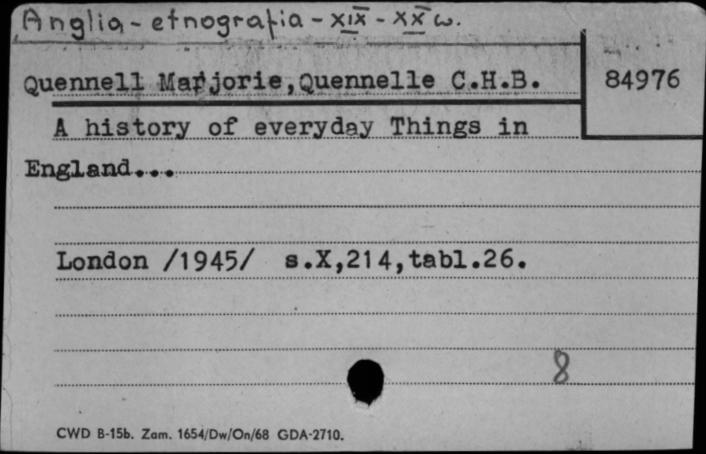 Anglia - etnografia - XIX - XX w.
Quennell Marjorie,Quennelle C.H.B.
84976
A history of everyday Things in
England...
London /1945/ s.X,214,tabl.26.
8
CWD B-15b. Zam. 1654/Dw/On/68 GDA-2710.